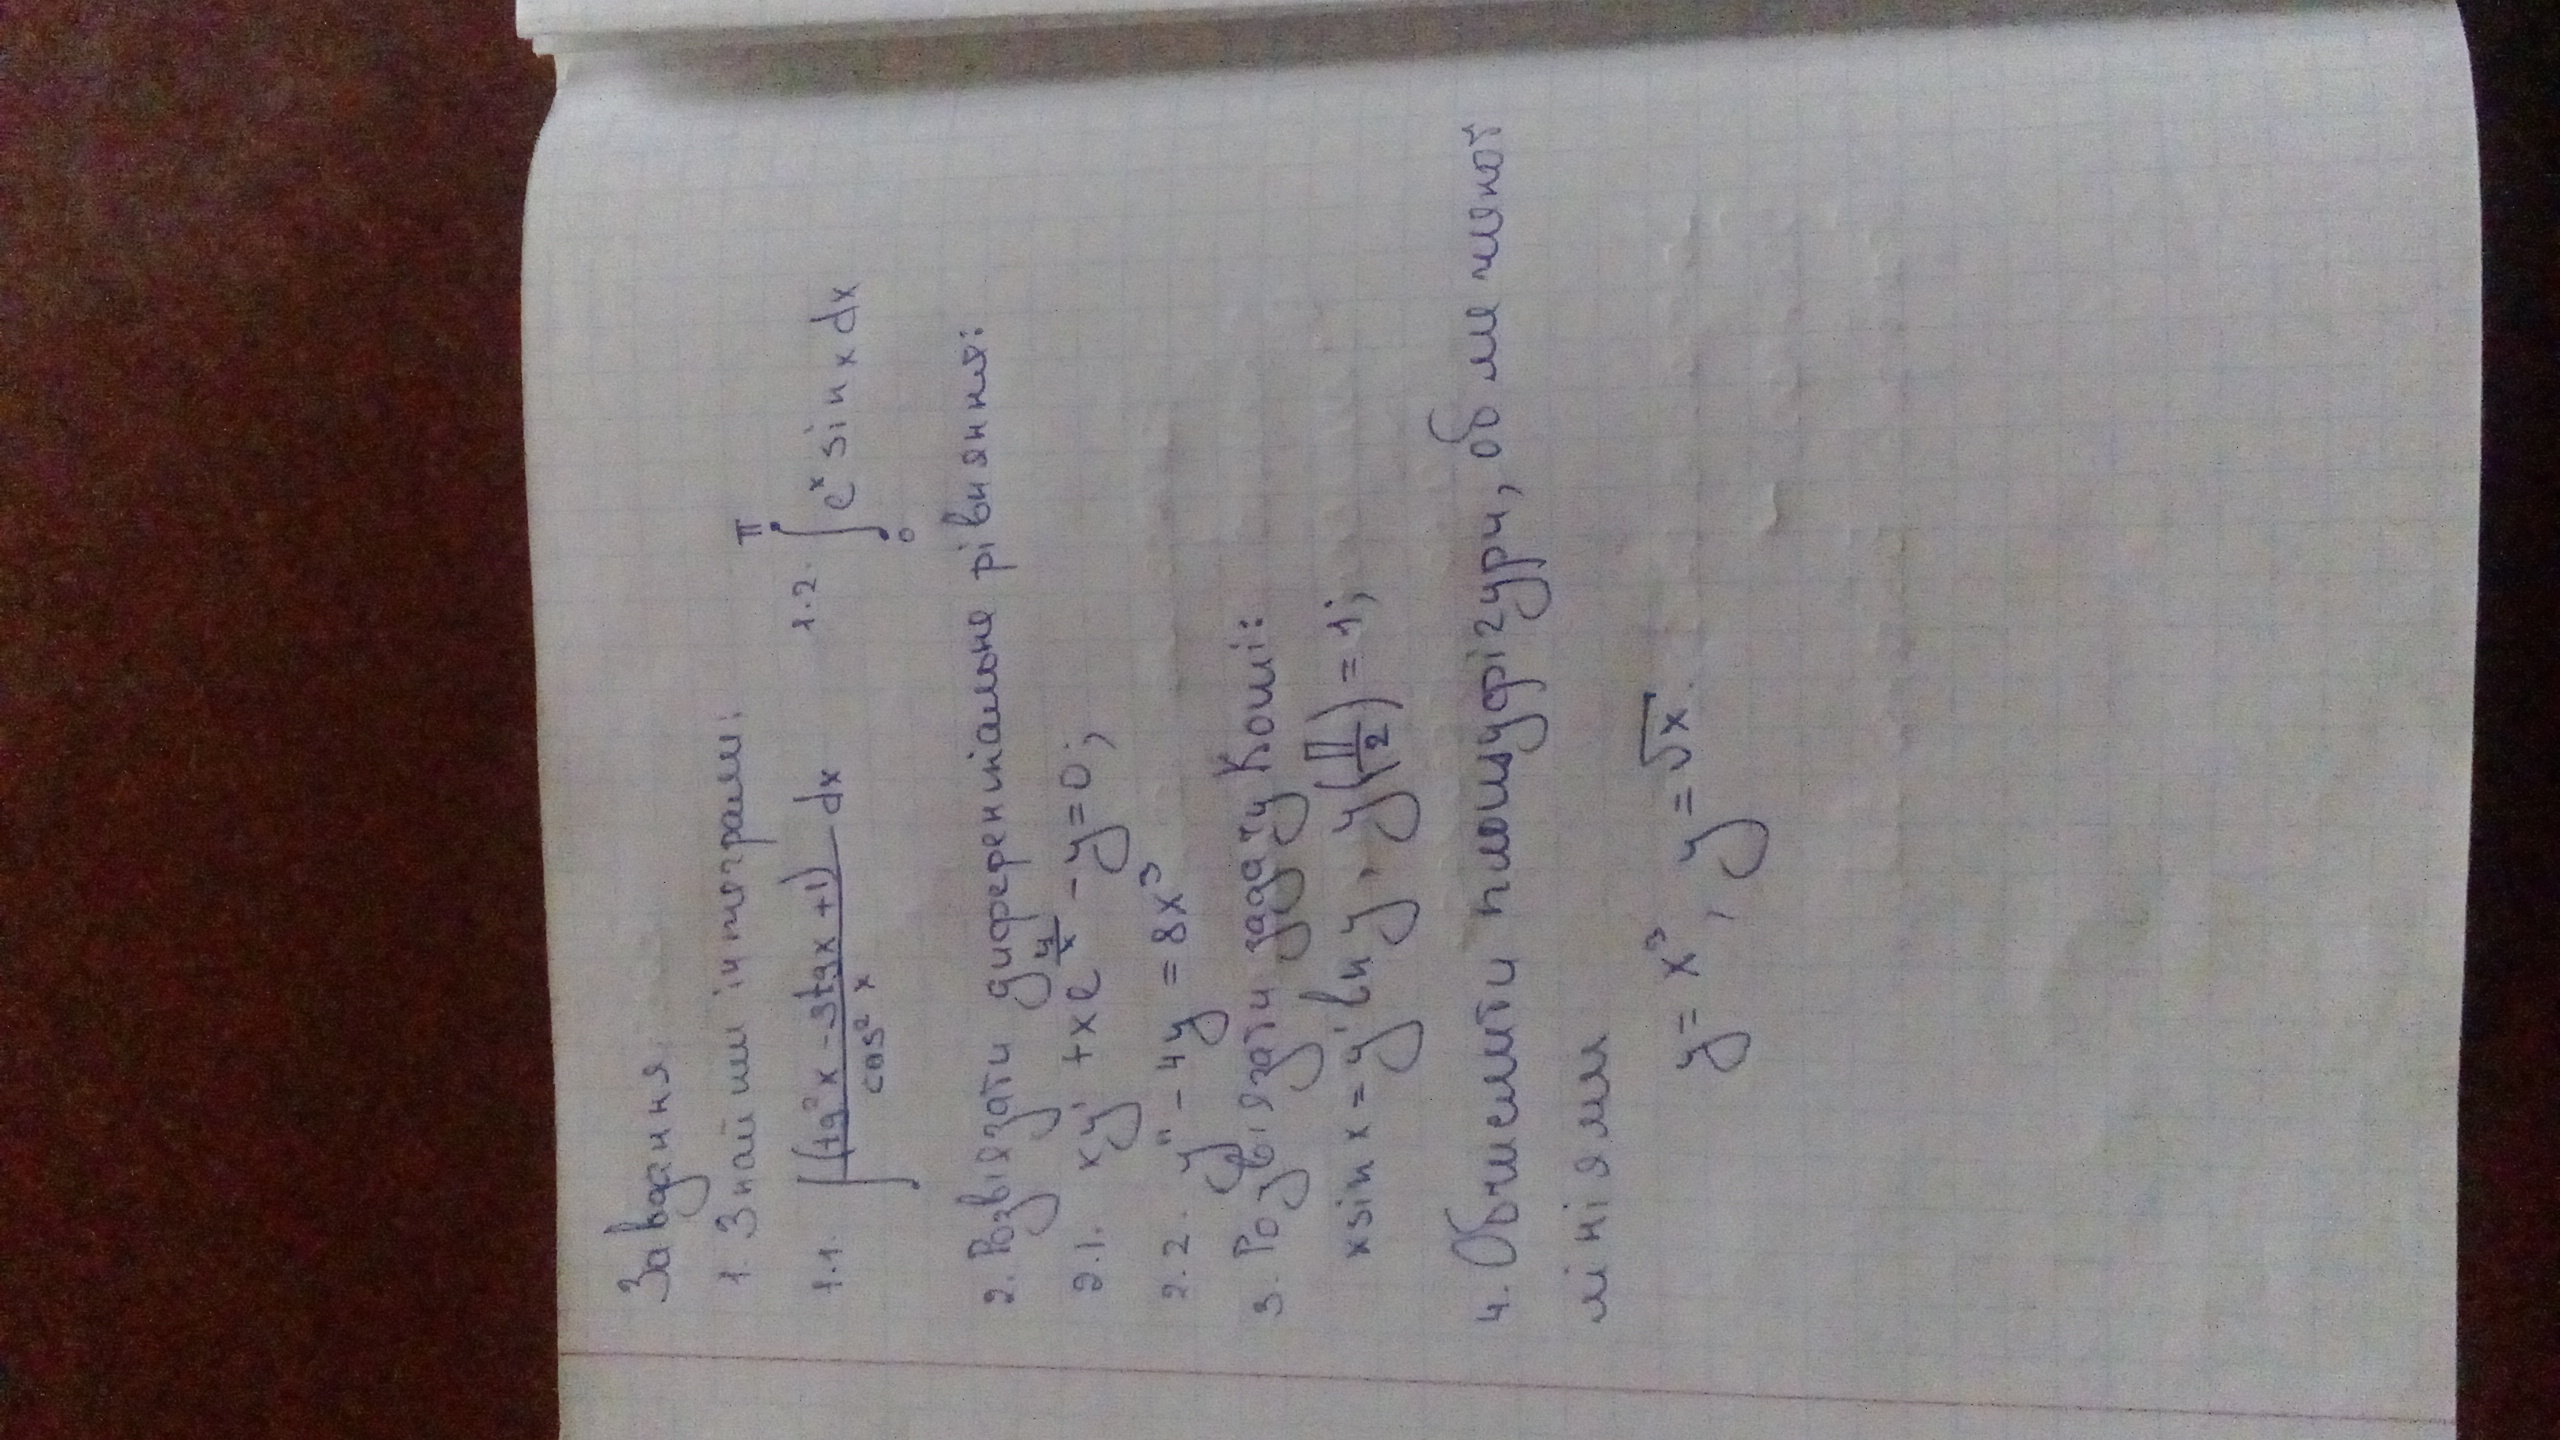 Завдання
1. Знайти інтеграли:
1.1. ∫ (tg²x - 3tgx + 1) / cos² x dx 1.2. ∫₀^π eˣ sin x dx
2. Розв'язати диференціальне рівняння:
2.1. xy' + xe^(y/x) - y = 0;
2.2. y'' - 4y = 8x³
3. Розв'язати задачу Коші:
x sin x = y' ln y, y(π/2) = 1;
4. Обчислити площу фігури, обмеженої
лініями
y = x³, y = √x.